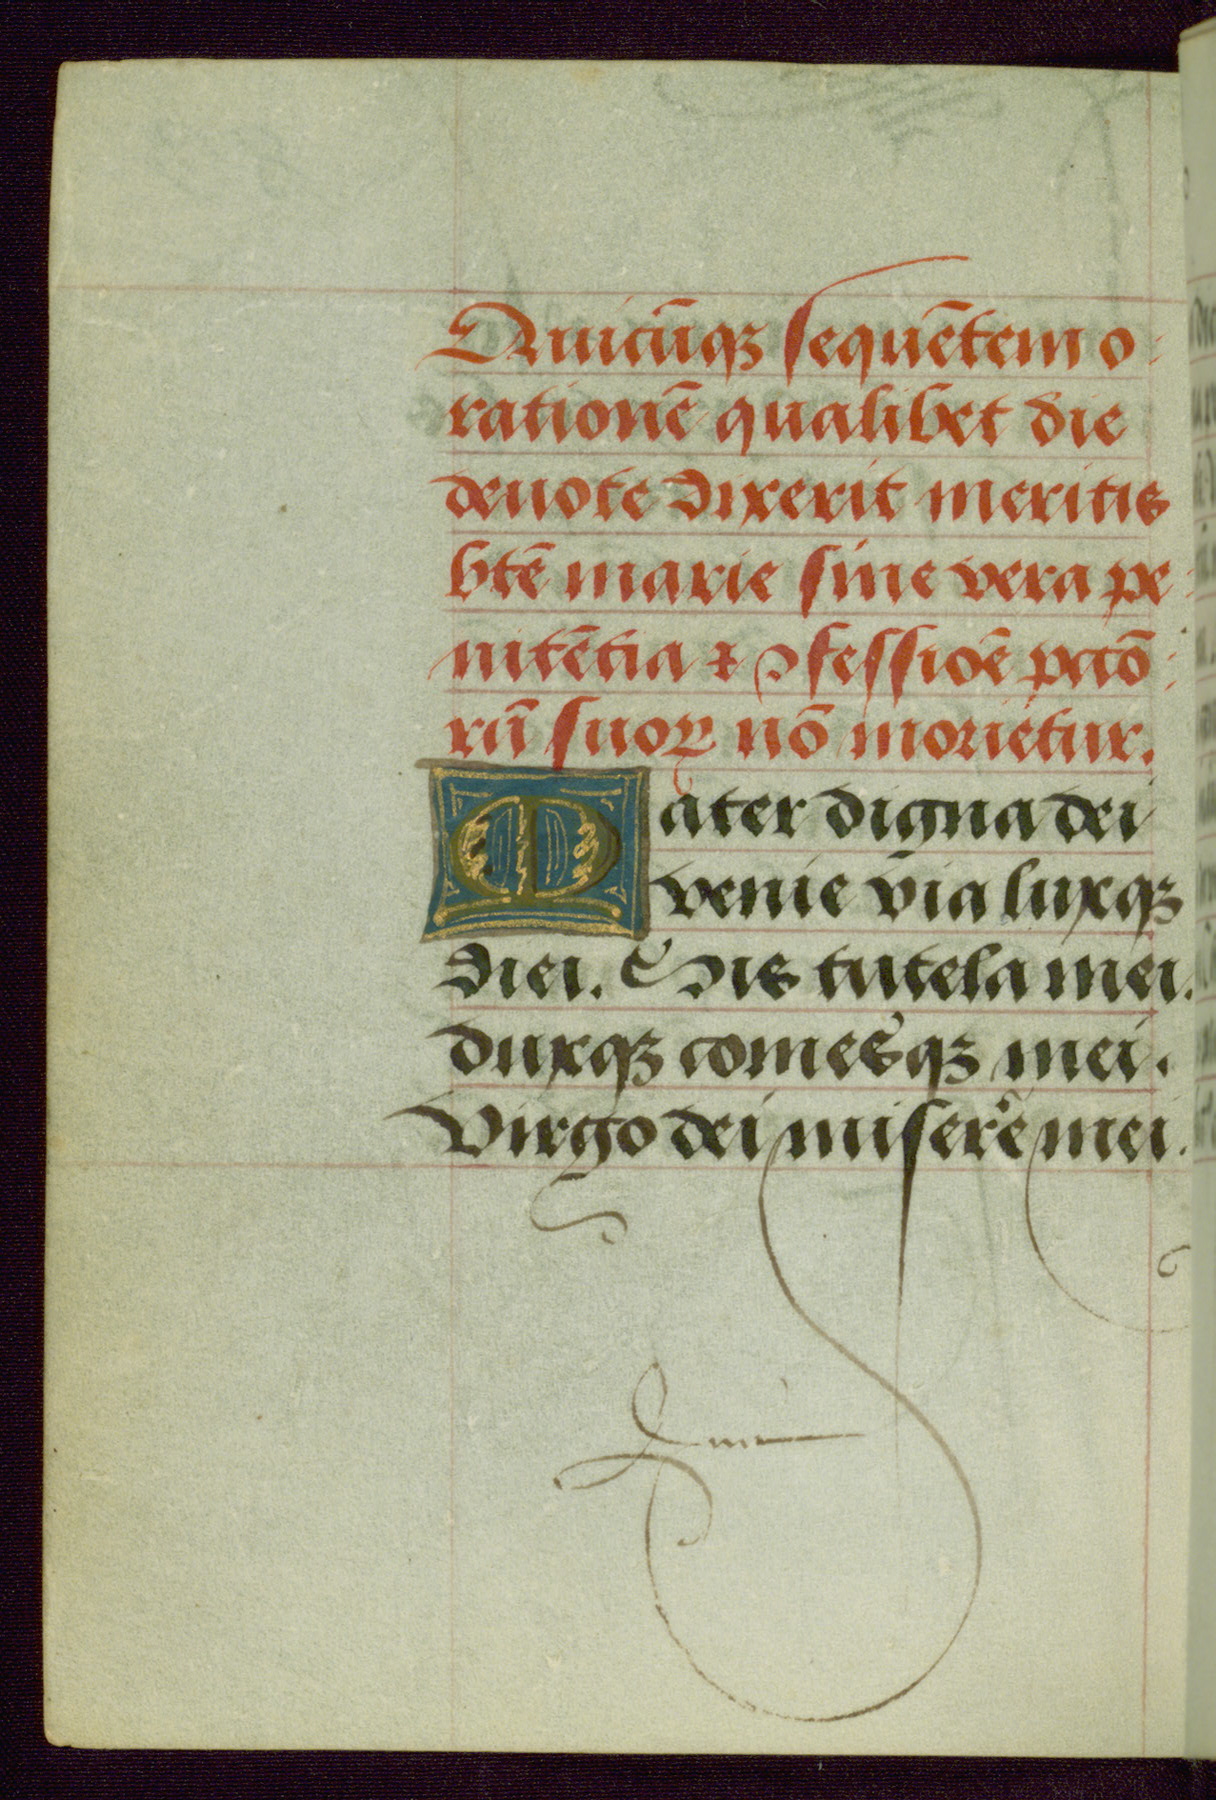 Quicūqꝫ sequētem o-
rationē qualibet die
deuote dixerit meritis
btē marie sine vera pe-
nitētia ⁊ ꝯfessiōe pctō-
rū suoꝝ nō morietur.
Mater digna dei
venie via luxqꝫ
diei. Sis tutela mei.
duxqꝫ comesqꝫ mei.
Virgo dei miserē mei.